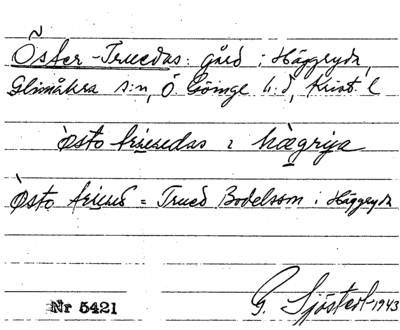 Öster-Truedas: gård i Häggryda,
Glimåkra s:n, Ö. Göinge h:d, Krist. l
östo truedas i hægrya
Östo trued = Trued Bodelsson i Häggryda
Nr 5421
G. Sjöstedt 1943